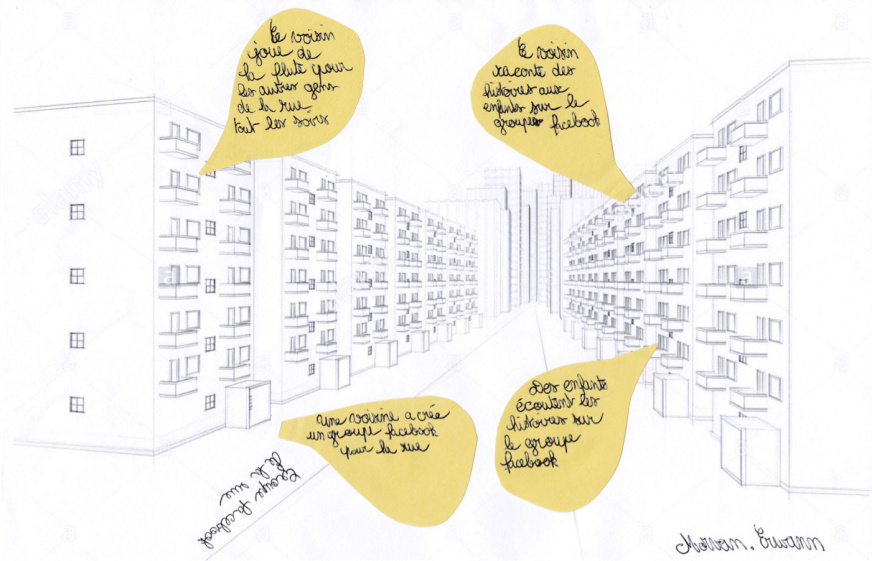 Le voisin
joue de
la flute pour
les autres gens
de la rue
tout les soirs
Le voisin
raconte des
histoires aux
enfants sur le
groupe facebook
Une voisine a crée
un groupe facebook
pour la rue
Des enfants
écoutent les
histoires sur
le groupe
facebook
Groupe facebook
de la rue
Morvan. Erwann